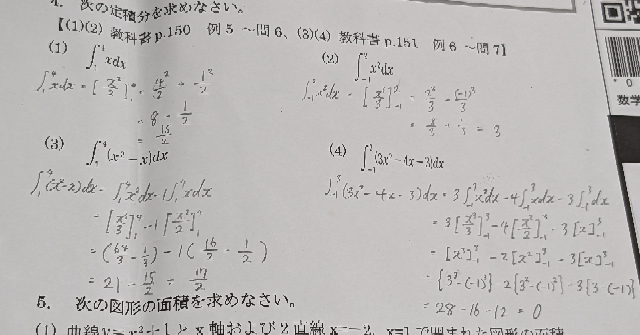 4. 次の定積分を求めなさい。
【(1)(2) 教科書 p.150 例5 ～問6、(3)(4) 教科書 p.151 例6 ～問7】
(1) ∫₁⁴ xdx
∫₁⁴ xdx = [x²/2]₁⁴ = 4²/2 - 1²/2
= 8 - 1/2
= 15/2
(2) ∫₋₁² x²dx
∫₋₁² x²dx = [x³/3]₋₁² = 2³/3 - (-1)³/3
= 8/3 + 1/3 = 3
(3) ∫₁⁴ (x² - x)dx
∫₁⁴ (x² - x)dx = ∫₁⁴ x²dx - 1∫₁⁴ xdx
= [x³/3]₁⁴ - 1[x²/2]₁⁴
= (64/3 - 1/3) - 1(16/2 - 1/2)
= 21 - 15/2 = 27/2
(4) (3x² - 4x - 3)dx
(3x² - 4x - 3)dx = 3∫₋₁³ x²dx - 4∫₋₁³ xdx - 3∫₋₁³ dx
= 3[x³/3]₋₁³ - 4[x²/2] - 3[x]₋₁³
= [x³]₋₁³ - 2[x²]₋₁³ - 3[x]₋₁³
= {3³ - (-1)³} 2{3² - (-1)²} - 3{3 - (-1)}
= 28 - 16 - 12 = 0
5. 次の図形の面積を求めなさい。
(1) 曲線 と x 軸および2直線 x=-2, x=1 で囲まれた図形の面積
数学